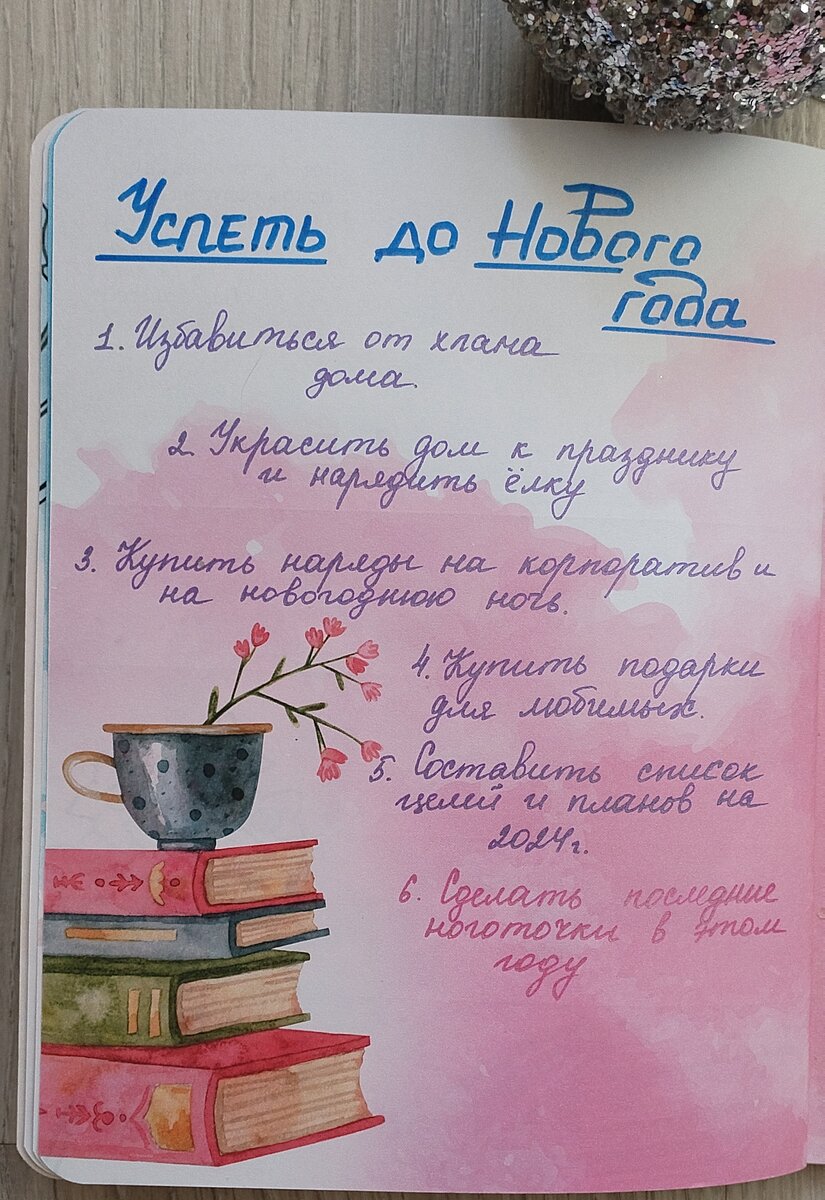 Успеть до Нового
года
1. Избавиться от хлама
дома.
2. Украсить дом к празднику
и нарядить ёлку
3. Купить наряды на корпоратив и
на новогоднюю ночь.
4. Купить подарки
для любимых.
5. Составить список
целей и планов на
2024г.
6. Сделать последние
ноготочки в этом
году